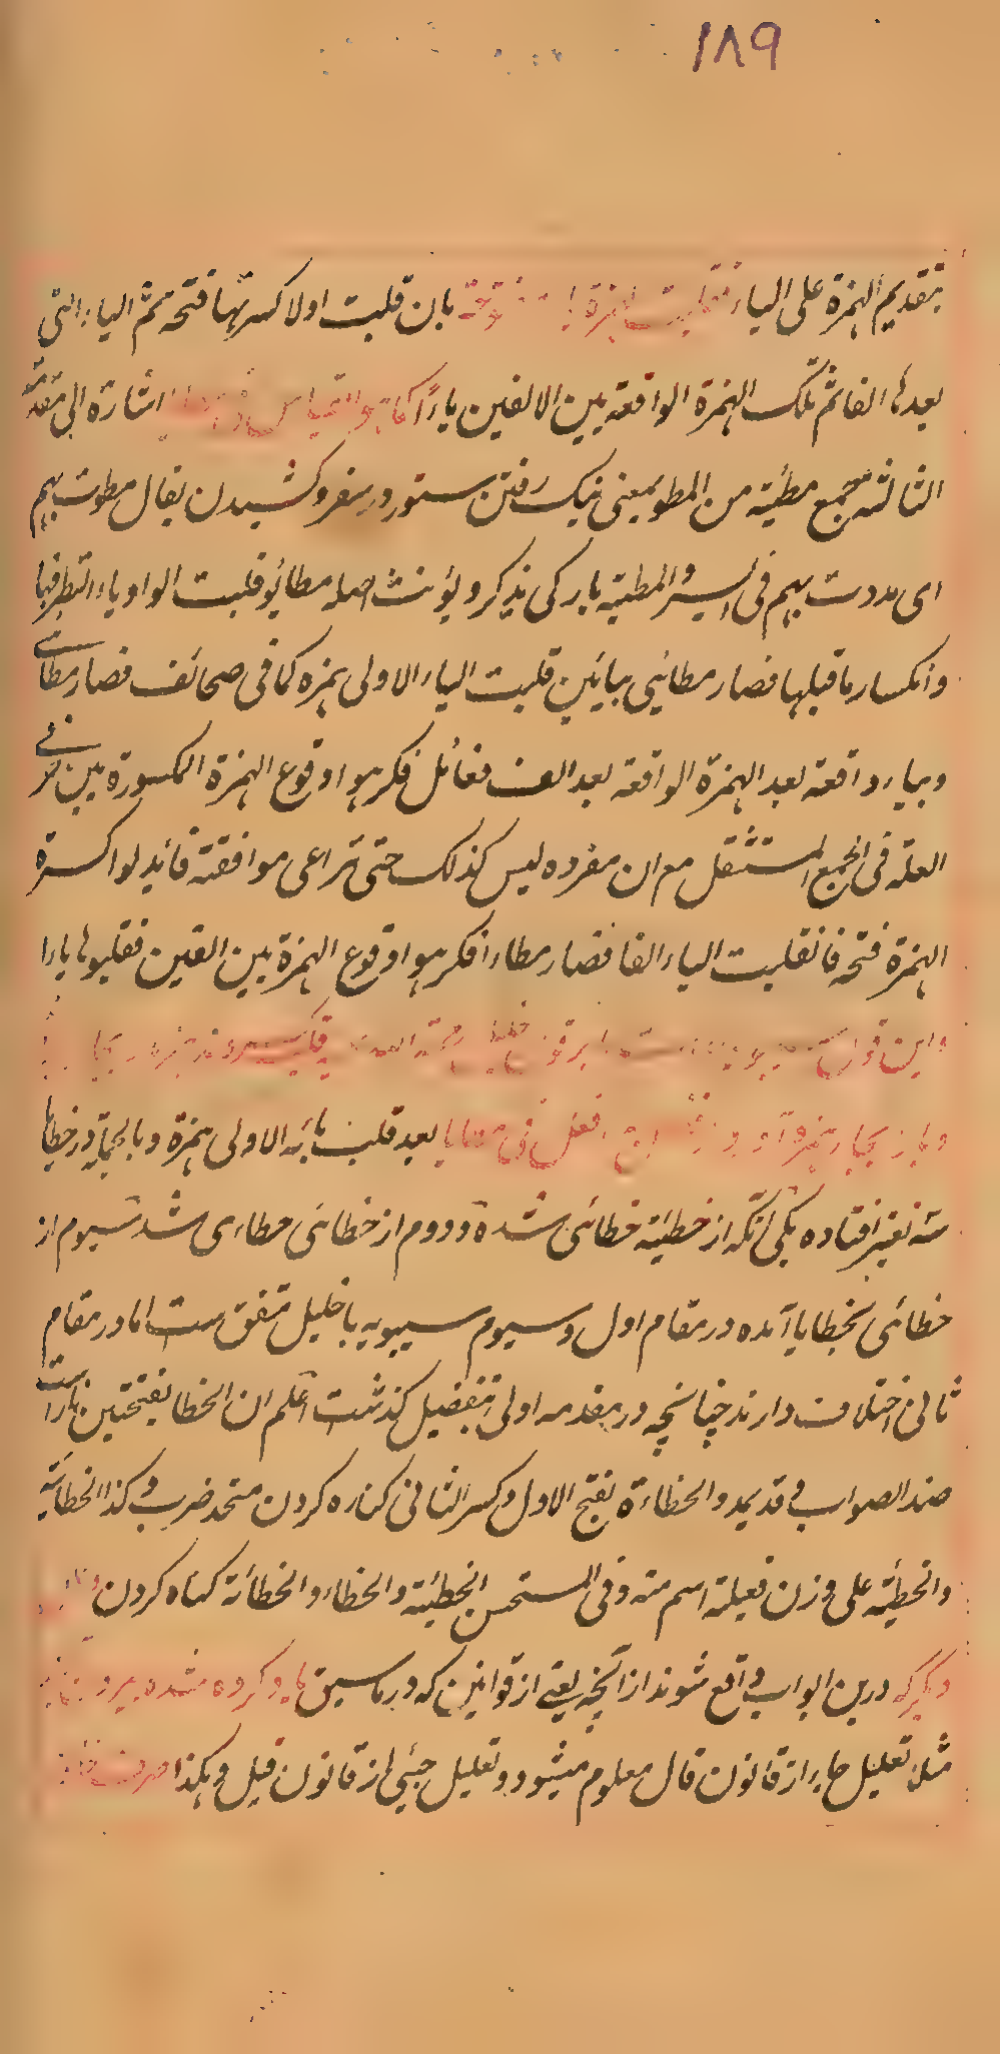 ١٨٩
بتقدیم الهمزة علی الیاء فقلبت الهمزة یاء مفتوحة بان قلبت اولا کسرتها فتحة ثم الیاء التی
بعدها الفا ثم تلک الهمزة الواقعة بین الالفین یاءً کما هو القیاس اشارة الی مقدمة
الثالثة جمع مطیة من المطو بمعنی نیک رفتن ستور در سفر و کشیدن یقال مطوت بهم
ای مددت بهم فی السیر و المطیة بارکی یذکر و یؤنث اصله مطایو قلبت الواو یاء لتطرفها
و انکسار ما قبلها فصار مطایی بیائین قلبت الیاء الاولی همزه کما فی صحائف فصار مطائی
و بیاء واقعة بعد الهمزة الواقعة بعد الف فعائل فکرهوا وقوع الهمزة المکسورة بین حرفی
العلة فی الجمع المستثقل مع ان مفرده لیس کذلک حتی تراعی موافقته فابدلوا کسرة
الهمزة فتحة فانقلبت الیاء الفا فصار مطاءا فکرهوا وقوع الهمزة بین الفین فقلبوها یاءا
و این قول
بعد قلب یائه الاولی همزة و بالجملة در خطایا
سه تغیر افتاده یکی آنکه از خطیئة خطائئ شده و دوم از خطائئ خطاءی شد سیوم از
خطائی بخطایا آمده در مقام اول و سیوم سیبویه با خلیل متفق ست اما در مقام
ثانی اختلاف دارند چنانچه در مقدمه اولی بتفصیل گذشت اعلم ان الخطا بفتحتین ناراست
ضد الصواب و قد یمد و الخطاءة بفتح الاول و کسر الثانی گناه کردن متحد ضرب و کذا الخطائة
و الخطیئة علی وزن فعیلة اسم منه و فی المستحسن الخطیئة و الخطاء و الخطأة گناه کردن
دیگر که درین ابواب واقع شوند از آنچه یعنی از قوانین که در ما سبق یاد کرده شده بیرون
مثلا تعلیل جاء از قانون قال معلوم میشود و تعلیل جیئ از قانون قیل و هکذا